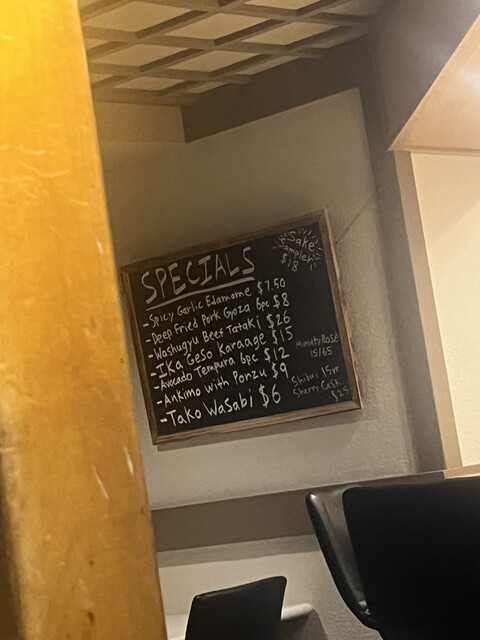 SPECIALS
- Spicy Garlic Edamame $7.50
- Deep Fried Pork Gyoza 6pc $8
- Washugyu Beef Tataki $26
- Ika Geso Karaage $15
- Avocado Tempura 6pc $12
- Ankimo with Ponzu $9
- Tako Wasabi $6
Sake
Sampler
$18
Rosé
15/65
15yr
Sherry Cask
$25